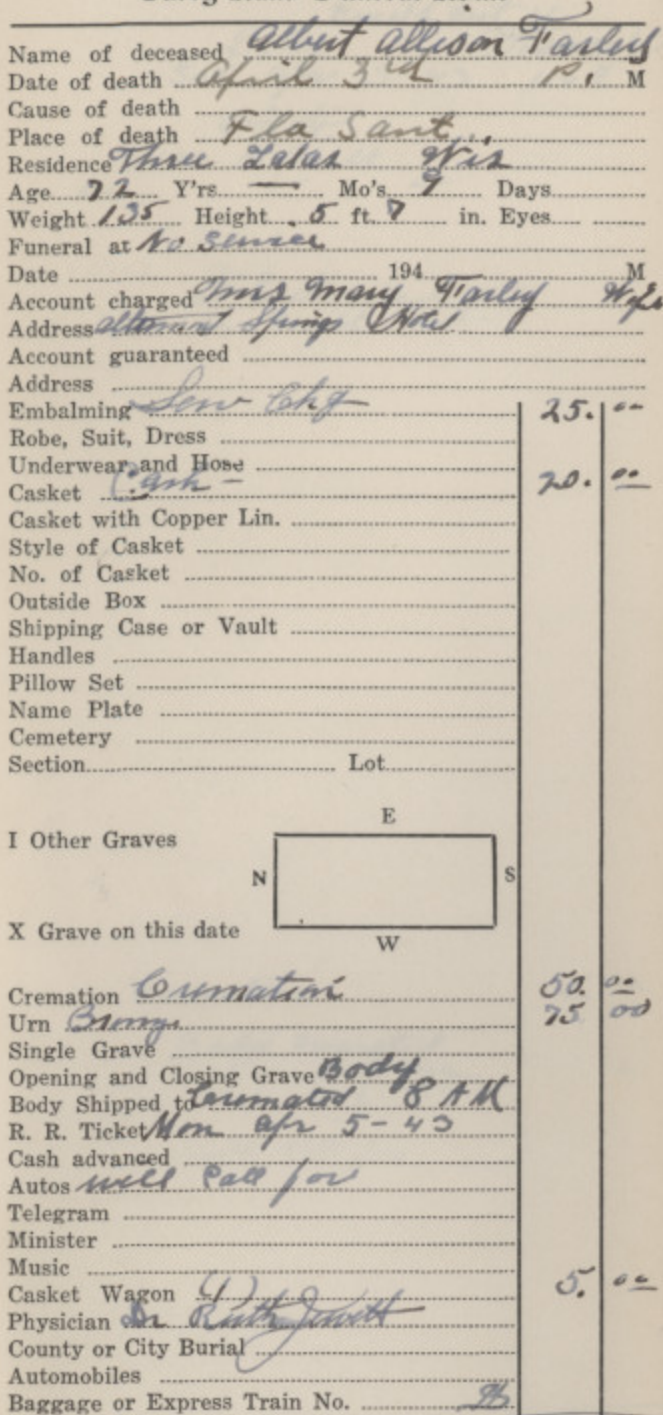 Name of deceased Albert Allison Farley
Date of death April 3rd P. M
Cause of death
Place of death Fla Sant.
Residence Three Lakes Wis
Age 72 Y'rs — Mo's 9 Days
Weight 135 Height 5 ft. 7 in. Eyes
Funeral at No Service
Date 194 M
Account charged Mrs Mary Farley Wife
Address Altamont Springs Hotel
Account guaranteed
Address
Embalming Serv Chg 25. 00
Robe, Suit, Dress
Underwear and Hose
Casket Cash - 20. 00
Casket with Copper Lin.
Style of Casket
No. of Casket
Outside Box
Shipping Case or Vault
Handles
Pillow Set
Name Plate
Cemetery
Section Lot
E
I Other Graves
N S
X Grave on this date
W
Cremation Cremation 50. 00
Urn Bronze 75 00
Single Grave
Opening and Closing Grave Body
Body Shipped to Cremated 8 AM
R. R. Ticket Mon Apr 5-43
Cash advanced
Autos will call for
Telegram
Minister
Music
Casket Wagon (1) 5. 00
Physician Dr Ruth Jewett
County or City Burial
Automobiles
Baggage or Express Train No.